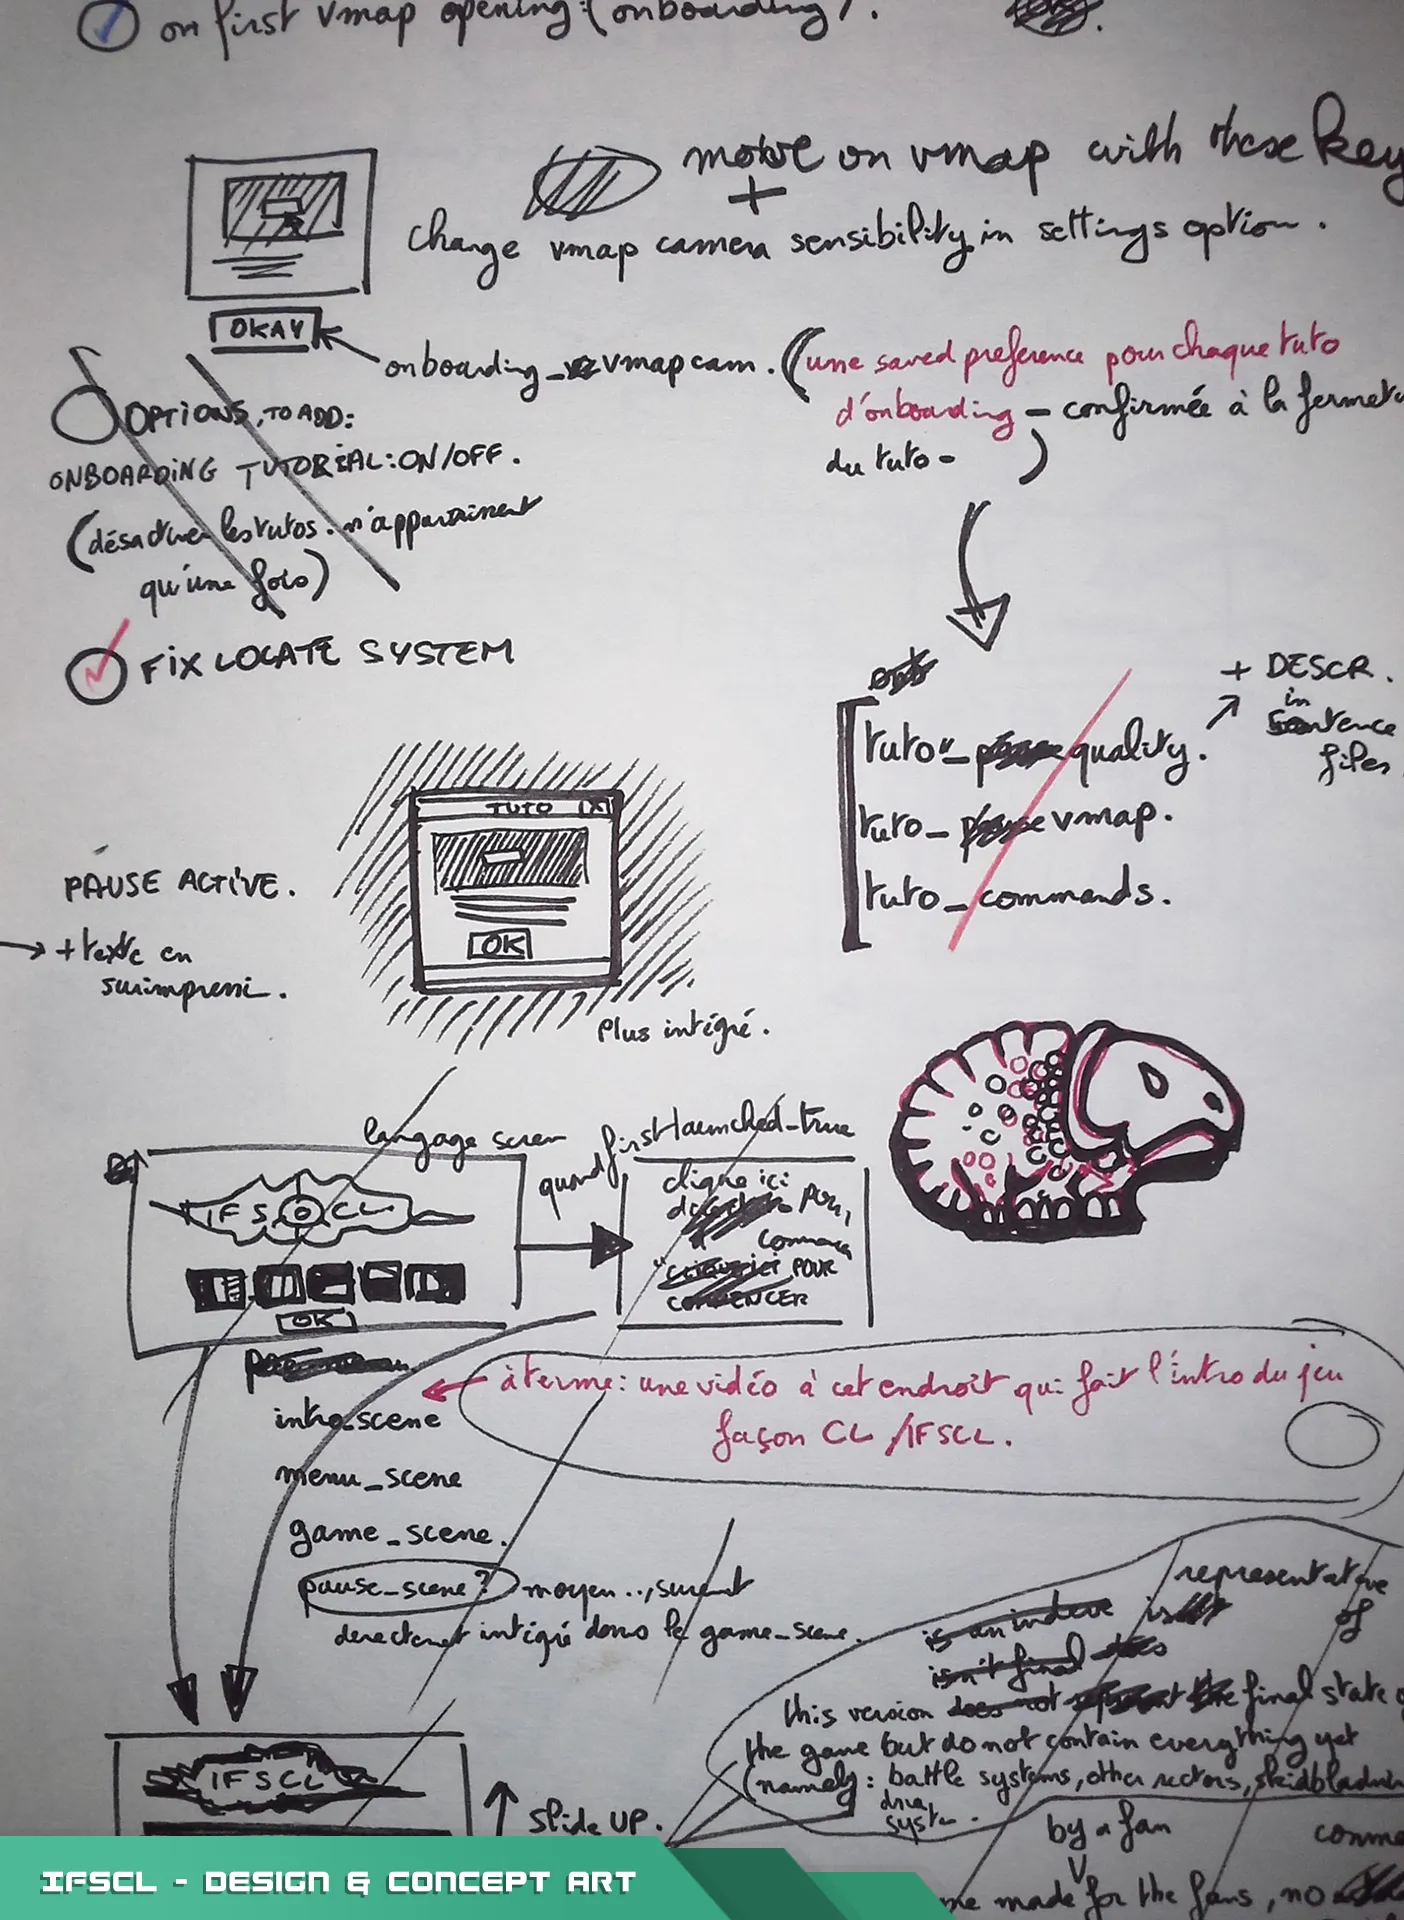 on first vmap opening: (onboarding).
move on vmap with these key
+
change vmap camera sensibility in settings option.
OKAY
onboarding_vmapcam. (une saved preference pour chaque tuto
d'onboarding - confirmée à la fermetu
du tuto - )
OPTIONS, TO ADD:
ONBOARDING TUTORIAL: ON/OFF.
(désactiver les tutos. n'apparaissent
qu'une fois)
FIX LOCATE SYSTEM
+ DESCR.
in
sentence
files
tuto_quality.
tuto_vmap.
tuto_commands.
TUTO X
OK
PAUSE ACTIVE.
+ texte en
surimpressi.
Plus intégré.
langage screen
quand firstlaunched_true
IFSCL
OK
clique ici
pour
commencer
"CLIQUE ici POUR
COMMENCER
à terme: une vidéo à cet endroit qui fait l'intro du jeu
façon CL / IFSCL.
intro_scene
menu_scene
game_scene.
pause_scene? moyen.., surement
directement intégré dans le game_scene.
representative
is an indeve is
of
isn't final does
this version does not represent the final state o
the game but do not contain everything yet
(namely: battle systems, other sectors, skidbladnir
system.
IFSCL
slide UP.
by a fan
me made for the fans, no
IFSCL - DESIGN & CONCEPT ART